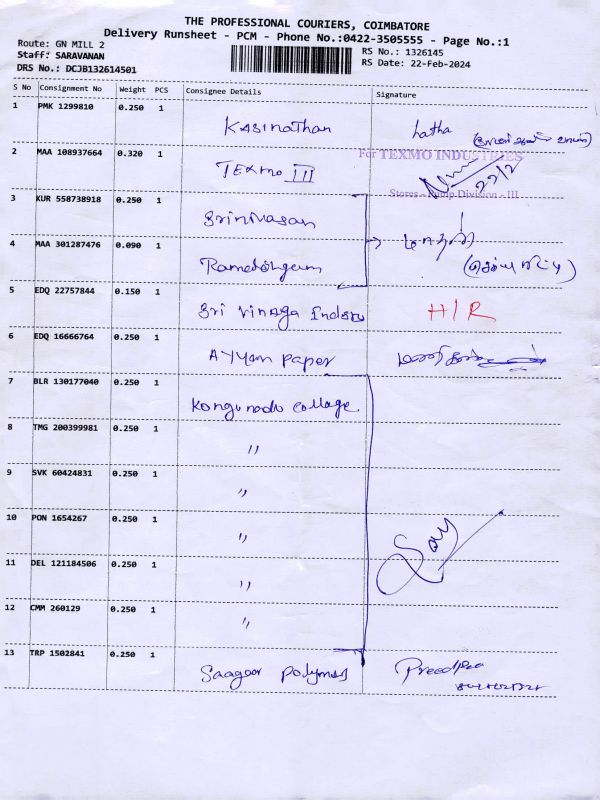 THE PROFESSIONAL COURIERS, COIMBATORE
Delivery Runsheet - PCM - Phone No.:0422-3505555 - Page No.:1
Route: GN MILL 2
Staff: SARAVANAN
DRS No.: DCJB132614501
RS No.: 1326145
RS Date: 22-Feb-2024
S No Consignment No Weight PCS Consignee Details Signature
1 PMK 1299810 0.250 1 Kasinathan Latha
2 MAA 108937664 0.320 1 TEXMO III
For TEXMO INDUSTRIES
22/2
Stores - Pump Division - III
3 KUR 558738918 0.250 1 Srinivasan
4 MAA 301287476 0.090 1
5 EDQ 22757844 0.150 1 Sri Vinaga H/R
6 EDQ 16666764 0.250 1 Ayyan paper
7 BLR 130177040 0.250 1 Kongunadu collage
8 TMG 200399981 0.250 1 "
9 SVK 60424831 0.250 1 "
10 PON 1654267 0.250 1 "
11 DEL 121184506 0.250 1 "
12 CMM 260129 0.250 1 "
13 TRP 1502841 0.250 1 Saagar polymers